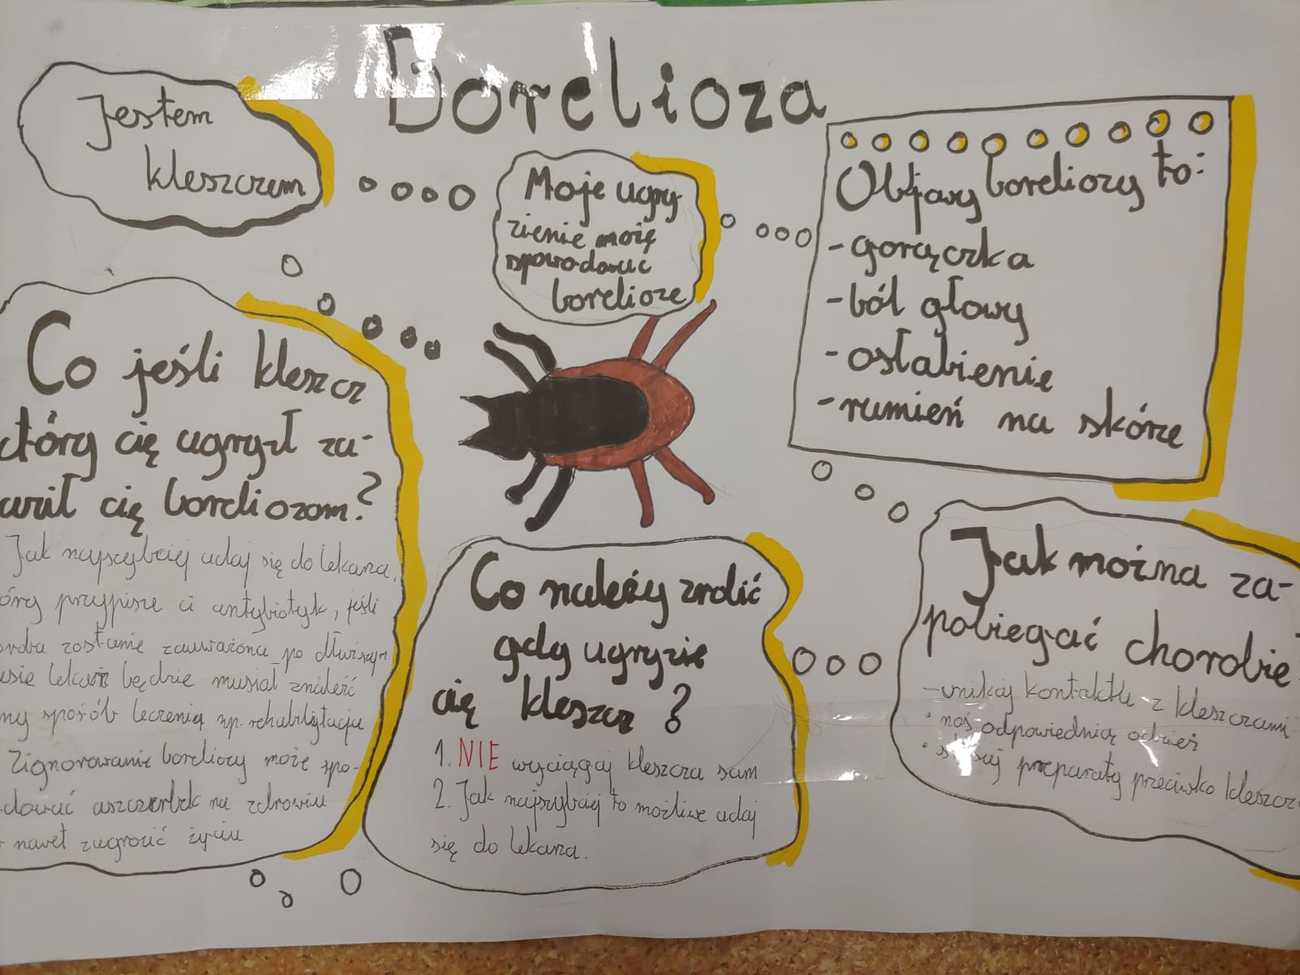 Borelioza
Jestem
kleszczem
Moje ugry-
zienie możę
spowodować
borelioze
Objawy boreliozy to:
- gorączka
- ból głowy
- osłabienie
- rumień na skórze
Co jeśli kleszcz
który cię ugryzł za-
ził cię boreliozom?
Jak najszybciej udaj się do lekarza,
óry przypisze ci antybiotyk, jeśli
oroba zostanie zauważona po dłuższym
asie lekarz będzie musiał znaleźć
ny sposób leczenia np. rehabilitacja
Zignorowanie boreliozy może spo-
dować uszczerbek na zdrowiu
nawet zagrozić życiu
Co należy zrobić
gdy ugryzie
cię kleszcz?
1. NIE wyciągaj kleszcza sam
2. Jak najszybciej to możliwe udaj
się do lekarza.
Jak można za-
pobiegać chorobie?
- unikaj kontaktu z kleszczami
• noś odpowiednią odzież
• stosuj preparaty przeciwko kleszcz